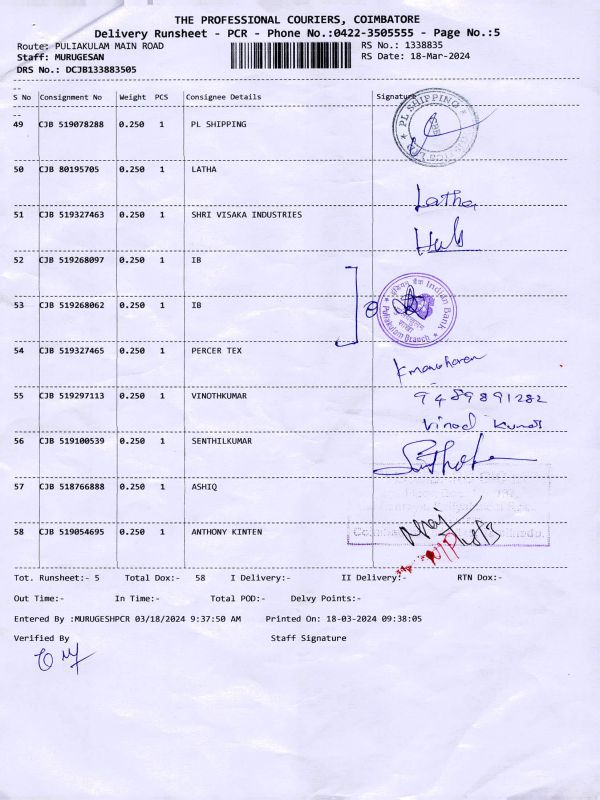 THE PROFESSIONAL COURIERS, COIMBATORE
Delivery Runsheet - PCR - Phone No.:0422-3505555 - Page No.:5
Route: PULIAKULAM MAIN ROAD
RS No.: 1338835
Staff: MURUGESAN
RS Date: 18-Mar-2024
DRS No.: DCJB133883505
S No Consignment No Weight PCS Consignee Details Signature
PL SHIPPING
49 CJB 519078288 0.250 1 PL SHIPPING
50 CJB 80195705 0.250 1 LATHA
Latha
51 CJB 519327463 0.250 1 SHRI VISAKA INDUSTRIES
52 CJB 519268097 0.250 1 IB
53 CJB 519268062 0.250 1 IB
Indian Bank
Puliakulam Branch
54 CJB 519327465 0.250 1 PERCER TEX
55 CJB 519297113 0.250 1 VINOTHKUMAR
9489891282
Vinod Kumar
56 CJB 519100539 0.250 1 SENTHILKUMAR
57 CJB 518766888 0.250 1 ASHIQ
58 CJB 519054695 0.250 1 ANTHONY KINTEN
Tot. Runsheet:- 5 Total Dox:- 58 I Delivery:- II Delivery:- RTN Dox:-
Out Time:- In Time:- Total POD:- Delvy Points:-
Entered By :MURUGESHPCR 03/18/2024 9:37:50 AM Printed On: 18-03-2024 09:38:05
Verified By Staff Signature